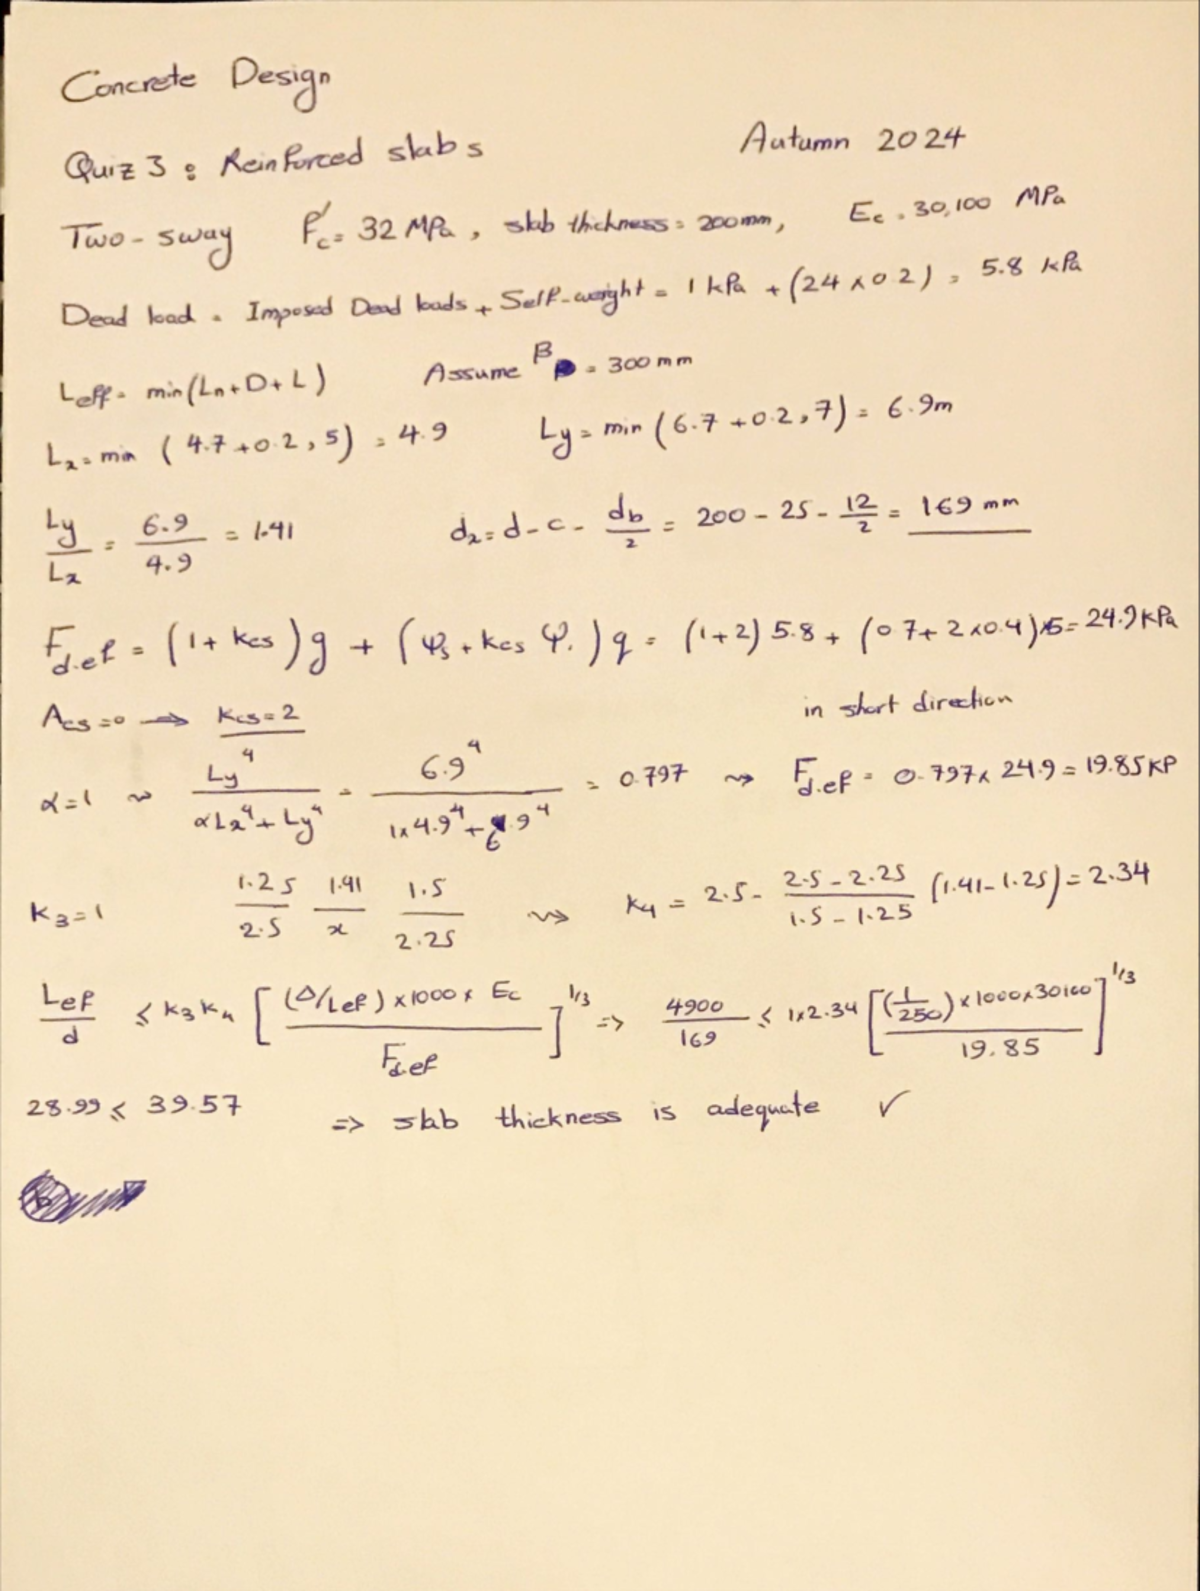 Concrete Design
Quiz 3 : Reinforced slabs Autumn 2024
Two-sway f'c = 32 MPa, slab thickness = 200mm, Ec = 30,100 MPa
Dead load = Imposed Dead loads + Self-weight = 1 kPa + (24 x 0.2) = 5.8 kPa
Leff = min(Ln + D + L) Assume B = 300mm
Lx = min (4.7 + 0.2, 5) = 4.9 Ly = min (6.7 + 0.2, 7) = 6.9m
Ly/Lx = 6.9/4.9 = 1.41 dx = d - c - db/2 = 200 - 25 - 12/2 = 169 mm
Fd.ef = (1 + kcs)g + (ψs + kcs ψ.)q = (1+2) 5.8 + (0.7 + 2x0.4)x5 = 24.9 kPa
Acs = 0 → kcs = 2 in short direction
α = 1 ⇝ Ly⁴/(αLx⁴ + Ly⁴) = 6.9⁴/(1x4.9⁴ + 6.9⁴) = 0.797 ⇝ Fd.ef = 0.797x 24.9 = 19.85 KP
k3 = 1 1.25/2.5 1.41/x 1.5/2.25 ⇝ k4 = 2.5 - (2.5 - 2.25)/(1.5 - 1.25) (1.41 - 1.25) = 2.34
Lef/d ≤ k3 k4 [(Δ/Lef) x 1000 x Ec / Fd.ef]^1/3 => 4900/169 ≤ 1x2.34 [(1/250) x 1000 x 30100 / 19.85]^1/3
28.99 ≤ 39.57 => slab thickness is adequate ✓